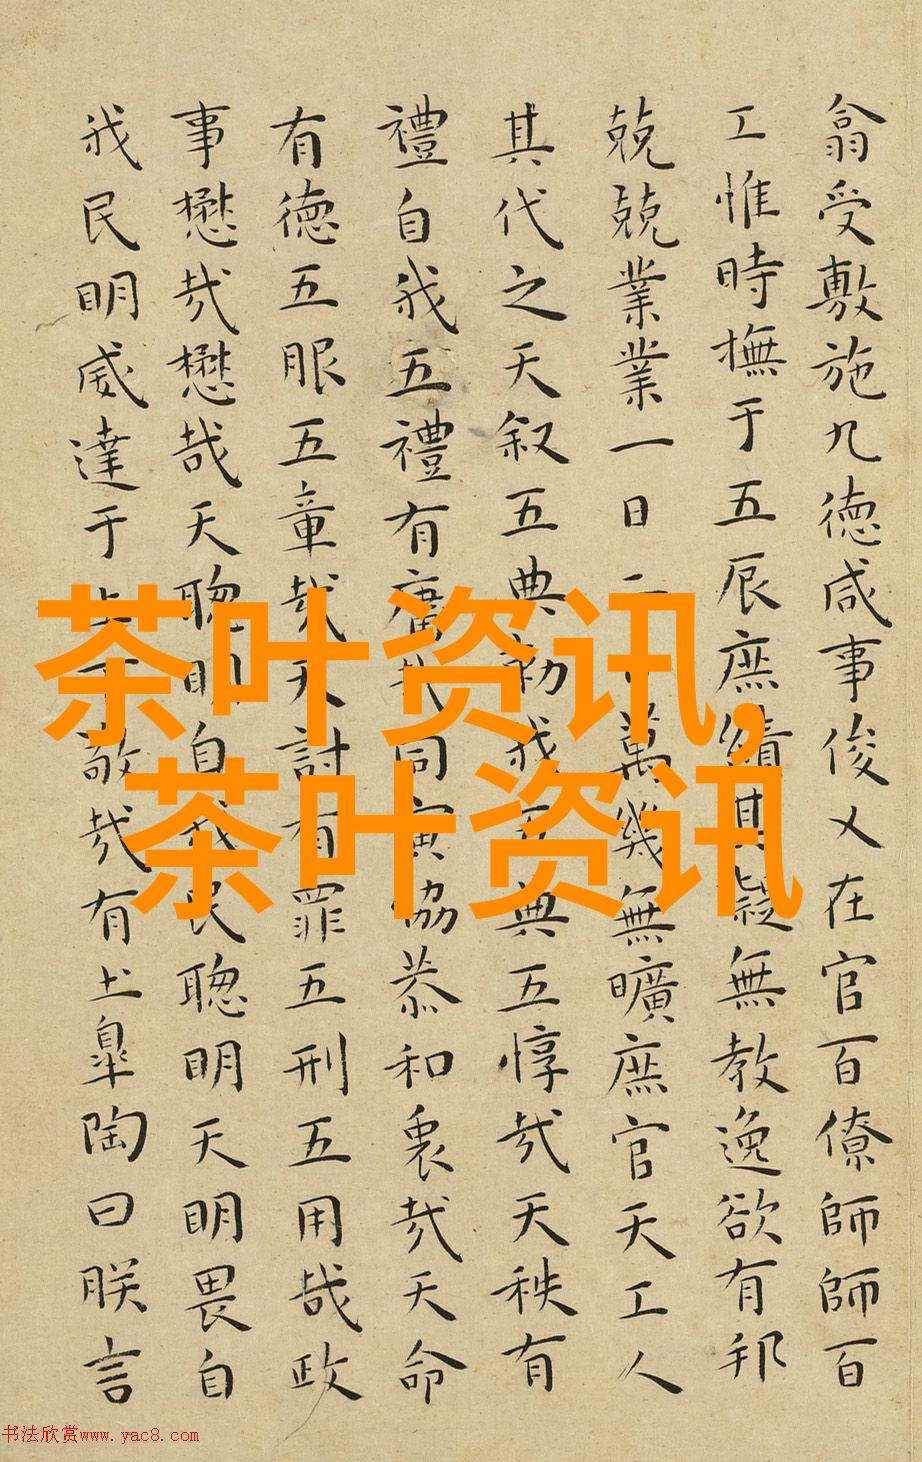 翕受敷施九德咸事俊乂在官百僚師師百
工惟時撫于五辰庶績其凝無教逸欲有邦
兢兢業業一日二日萬幾無曠庶官天工人
其代之天叙五典勑我五典五惇哉天秩有
禮自我五禮有庸哉同寅協恭和衷哉天命
有德五服五章哉天討有罪五刑五用哉政
事懋哉懋哉天聰明自我民聰明天明畏自
我民明威達于上下敬哉有土皐陶曰朕言
茶叶资讯,
茶叶资讯
书法欣赏www.yac8.com